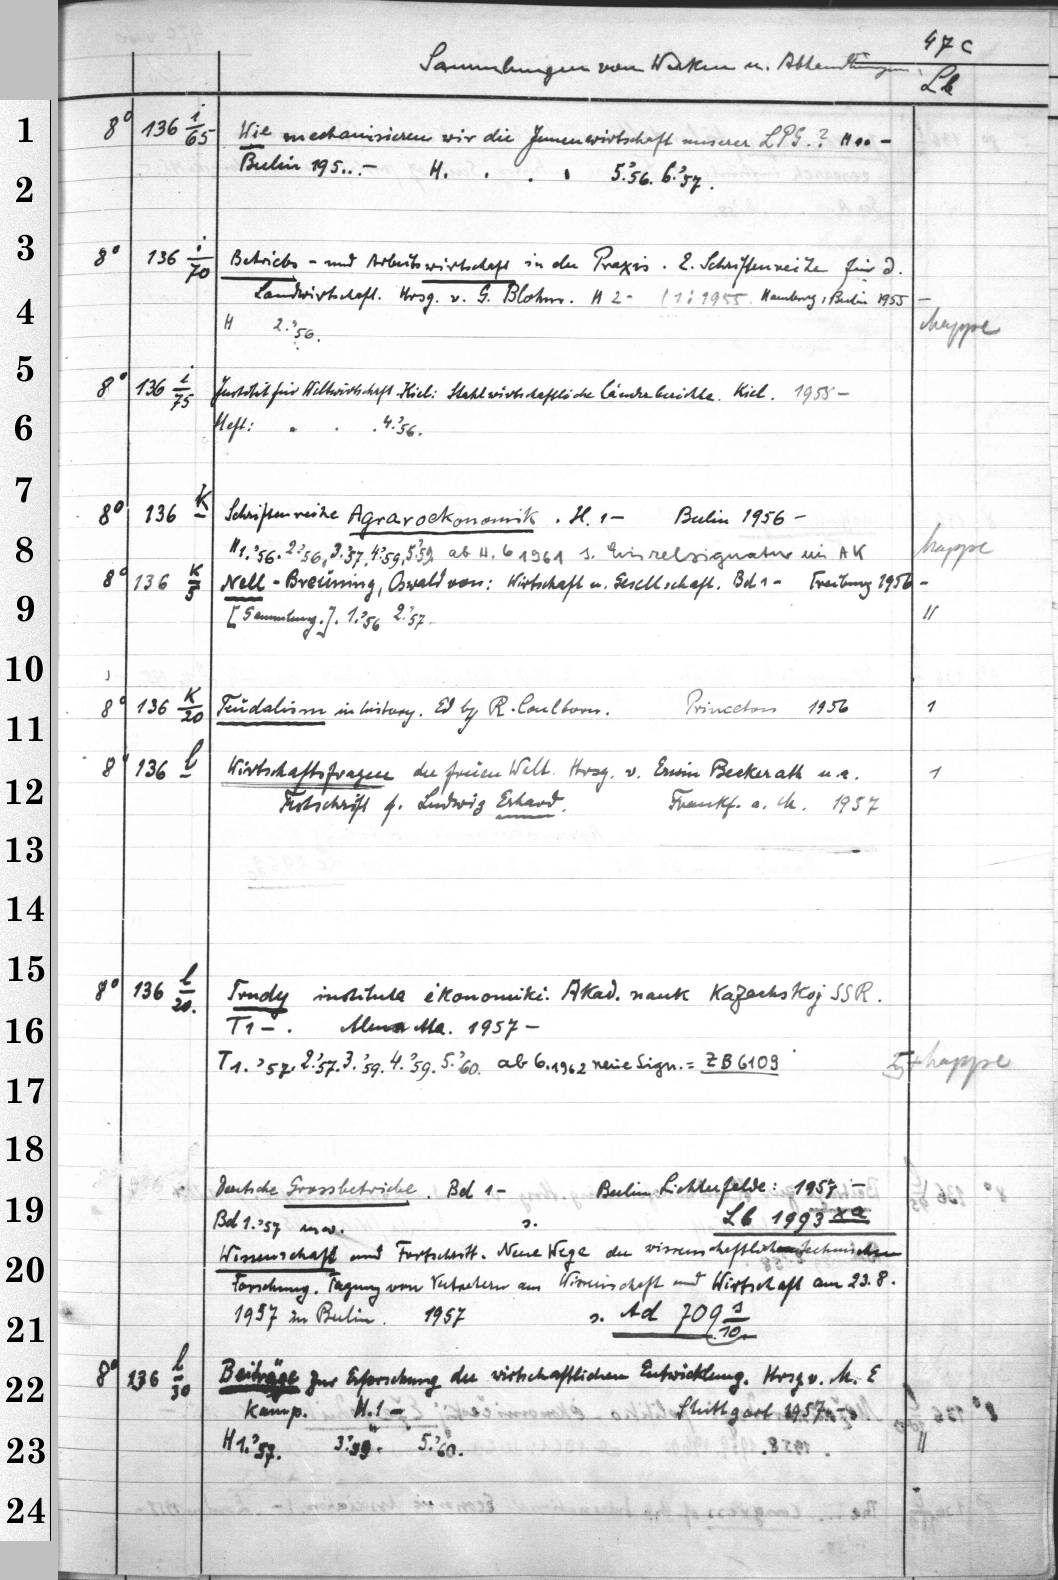 47 c
Sammlungen von Werken u. Abhandlungen. Lb
1
8° 136 i/65 Wie mechanisieren wir die Innenwirtschaft unserer LPG.? H.. -
Berlin 195..- H. . . . 5.'56. 6.'57.
2
3
8° 136 i/70 Betriebs- und Arbeitswirtschaft in der Praxis. E. Schriftenreihe für d.
Landwirtschaft. Hrsg. v. G. Blohm. H 2- (1: 1955. Hamburg, Berlin 1955 -
4
H 2.'56. Mappe
5
8° 136 i/75 Institut für Weltwirtschaft. Kiel: Stahlwirtschaftliche Länderberichte. Kiel. 1955-
6
Heft: . . . 4.'56.
7
8° 136 K Schriftenreihe Agrarockonomik. H. 1- Berlin 1956-
8
H 1.'56. 2.'56, 3.'57, 4.'59, 5.'59. ab H. 6 1961 s. Einzelsignatur im AK Mappe
8° 136 K/5 Nell-Breuning, Oswald von: Wirtschaft u. Gesellschaft. Bd 1- Freiburg 1956-
9
[Sammlung.]. 1.'56 2.'57. "
10
8° 136 K/20 Feudalism in history. Ed by R. Coulborn. Princeton 1956 1
11
8° 136 l Wirtschaftsfragen der freien Welt. Hrsg. v. Erwin Beckerath u.a. 1
12
Festschrift f. Ludwig Erhard. Frankf. a. M. 1957
13
14
15
8° 136 l/20. Trudy instituta ėkonomiki. Akad. nauk Kazachskoj SSR.
16
T 1-. Alma Ata. 1957-
T 1.'57. 2.'57. 3.'59. 4.'59. 5.'60. ab 6.1962 neue Sign. = ZB 6109 5+Mappe
17
18
Deutsche Grossbetriebe. Bd 1- Berlin Lichterfelde: 1957-
19
Bd 1.'57 usw. s. Lb 1993 xa
20
Wissenschaft und Fortschritt. Neue Wege der wissenschaftlichen technischen
Forschung. Tagung von Vertretern aus Wissenschaft und Wirtschaft am 23.8.
21
1957 in Berlin. 1957 s. Ad 709 s/10
22
8° 136 l/30 Beiträge zur Erforschung der wirtschaftlichen Entwicklung. Hrsg v. M. E
Kamp. H. 1- Stuttgart 1957-
23
H 1.'57. 3.'59. 5.'60. "
24